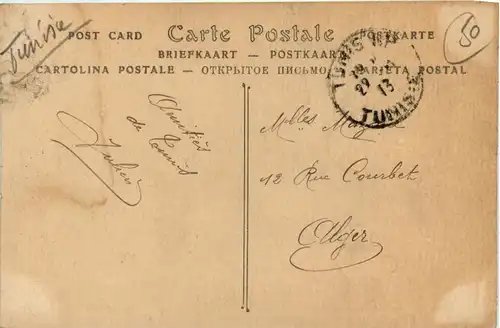 Tunisie
50
POST CARD Carte Postale POSTKARTE
BRIEFKAART — POSTKAART
CARTOLINA POSTALE — ОТКРЫТОЕ ПИСЬМО — TARJETA POSTAL
TUNIS
29
13
TUNISIE
Amitiés
de Tunis
Mlles
12 Rue Courbet
Alger